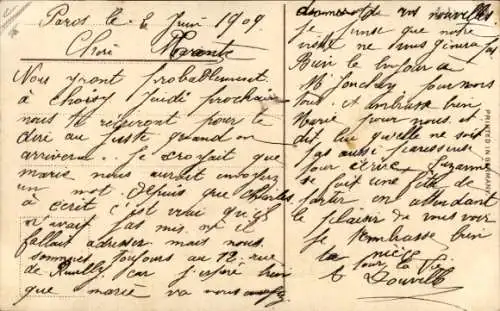 Paris le 2 Juin 1909
Chère
Nous iront probablement
à Choisy Jeudi prochain
nous te recriront pour le
dire au juste quand on
arrivera. Je croyait que
marie nous aurait envoyez
un mot. Depuis que Charles
à écrit c'est vrai qu'il
n'avait pas mis où il
fallait adresser mais nous
sommes toujours au 12 rue
de Reuilly car j'espère bien
que marie va nous
de vos nouvelles
je pense que notre
visite ne vous générat pas
Bien le bonjour à
Mr pour nous
tous. et embrasse bien
Marie pour nous et
dis lui qu'elle ne soit
pas aussi paresseuse
pour écrire. Suzanne
se fait une fête de
partir en attendant
le plaisir de vous voir
je t'embrasse bien
ta nièce
pour la vie
PRINTED IN GERMANY